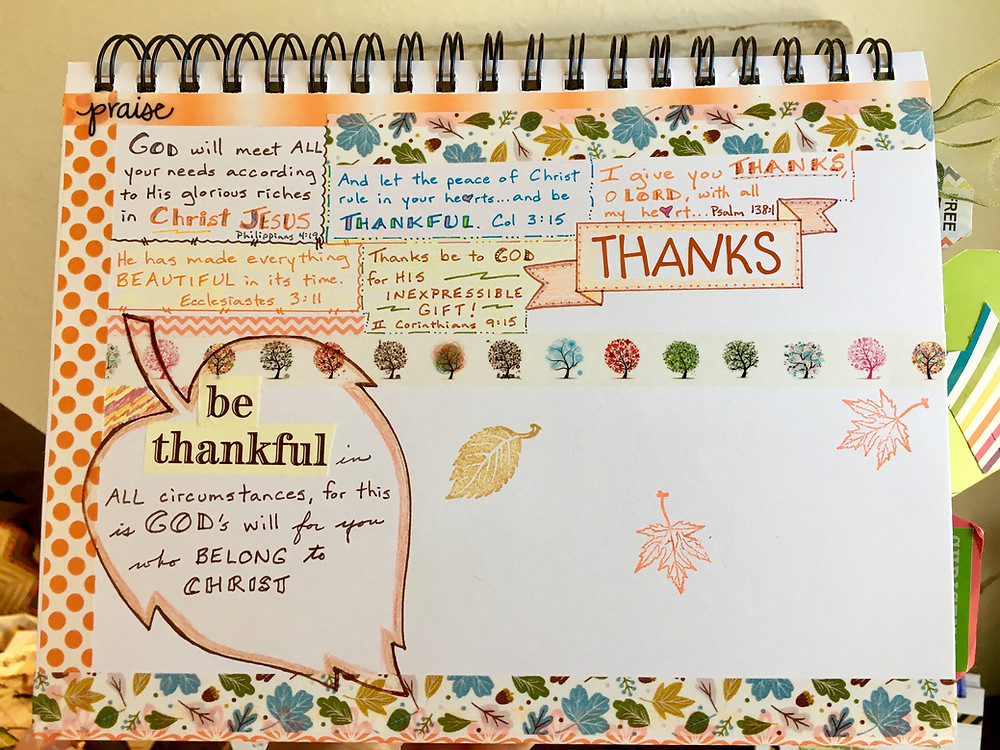 praise
GOD will meet ALL
your needs according
to His glorious riches
in Christ JESUS
Philippians 4:19
And let the peace of Christ
rule in your hearts...and be
THANKFUL. Col 3:15
I give you THANKS,
O LORD, with all
my heart... Psalm 138:1
He has made everything
BEAUTIFUL in its time.
Ecclesiastes 3:11
Thanks be to GOD
for HIS
INEXPRESSIBLE
GIFT!
II Corinthians 9:15
THANKS
be
thankful in
ALL circumstances, for this
is GOD's will for you
who BELONG to
CHRIST
FREE